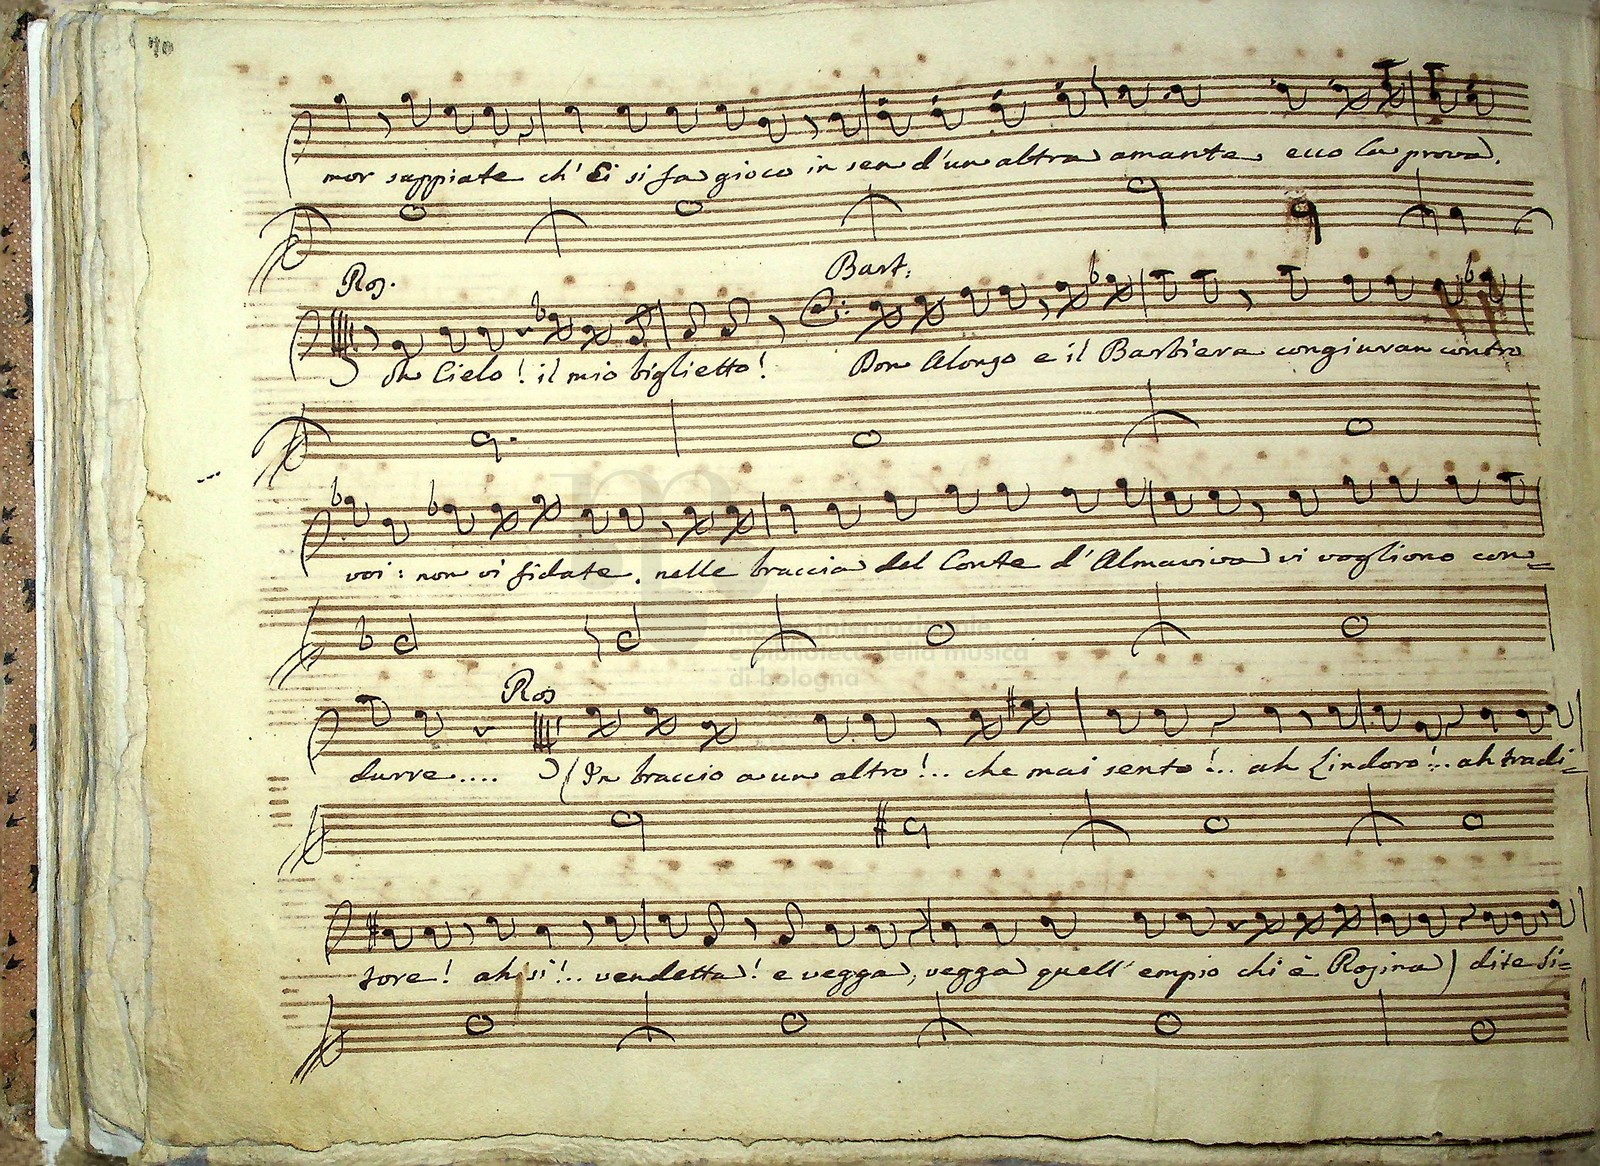 70
mor sappiate ch'Ei si fa gioco in sen d'un altra amante ecco la prova.
Ros.
Bart:
oh Cielo! il mio biglietto! Don Alonzo e il Barbiera congiuran contro
voi: non vi fidate. nelle braccia del Conte d'Almaviva vi vogliono con=
museo internazionale
e biblioteca della musica
di bologna
Ros
durre.... (In braccio a un altro!.. che mai sento!.. ah Lindoro!.. ah tradi=
tore! ah si!.. vendetta! e vegga, vegga quell'empio chi è Rosina) dite Si=